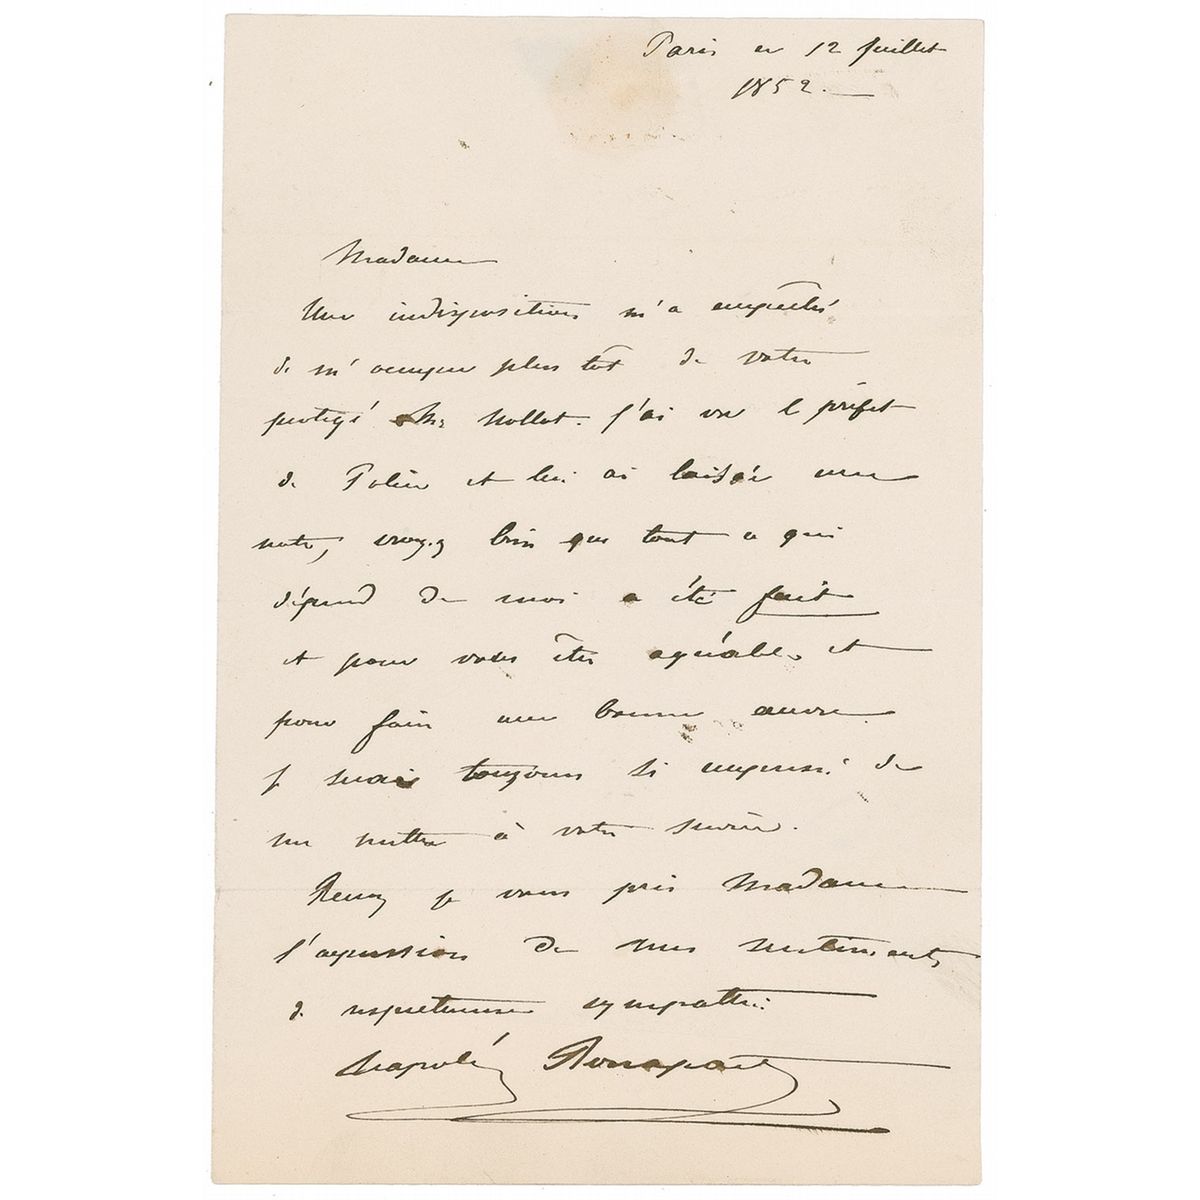 Paris ce 12 Juillet
1852.
Madame
Une indisposition m'a empêchés
de m'occuper plus tôt de votre
protégé Mr Mollot. J'ai vu le préfet
de Police et lui ai laissée une
note, croyez bien que tout ce qui
dépend de moi a été fait
et pour vous être agréable, et
pour faire une bonne œuvre
je serais toujours si empressé de
me mettre à votre service.
Recevez je vous prie Madame
l'expression de mes sentiments
de respectueuse sympathie.
Napoléon Bonaparte